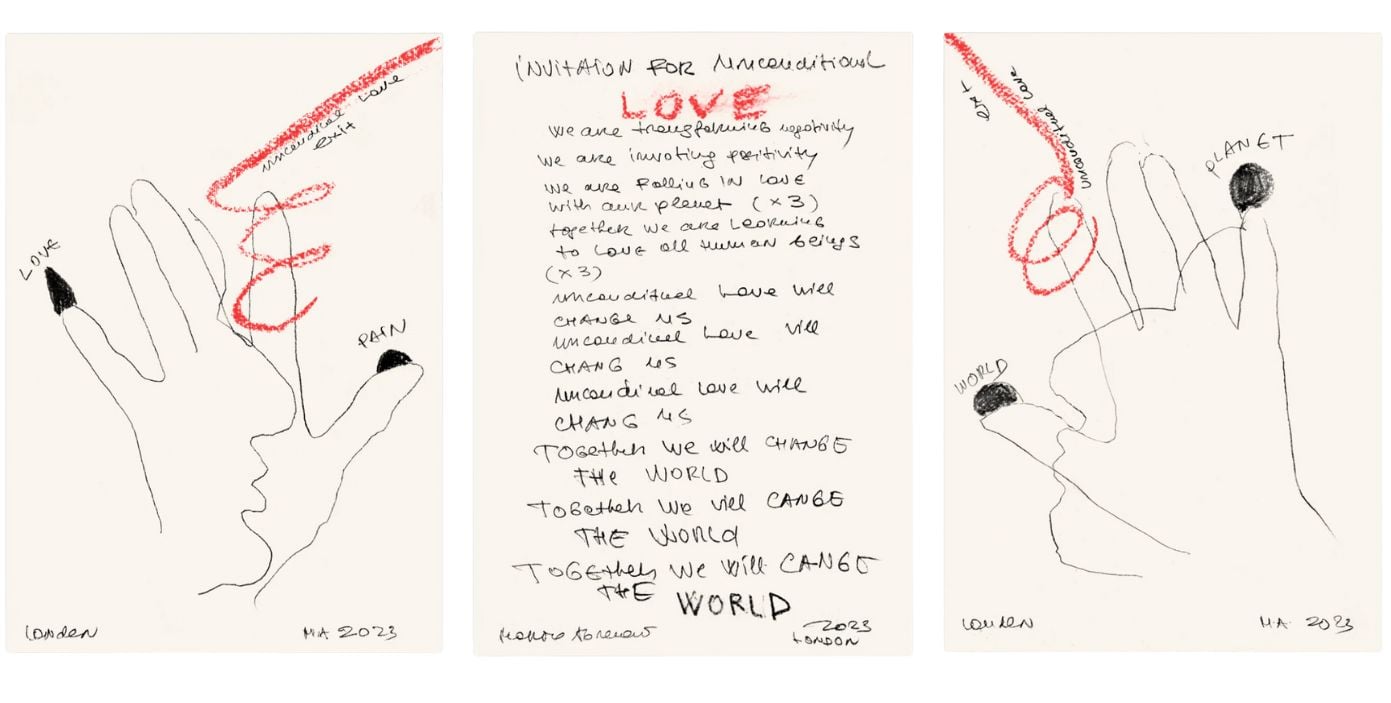 unconditional Love
Exit
LOVE
PAIN
London
MA 2023
INVITAION FOR Unconditional
LOVE
we are transforming negativity
we are invoting positivity
we are Falling IN LOVE
with our planet (x3)
together we are Learning
to Love all Human beings
(x3)
Love will
CHANGE US
Love will
CHANG US
Love will
CHANG US
TOGether We will CHANGE
THE WORLD
TOGether We will CANGE
THE WORLd
TOGETher We will CANGE
THE WORLD
2023
LONDON
Exit
unconditional Love
PLANET
WORLD
London
MA 2023